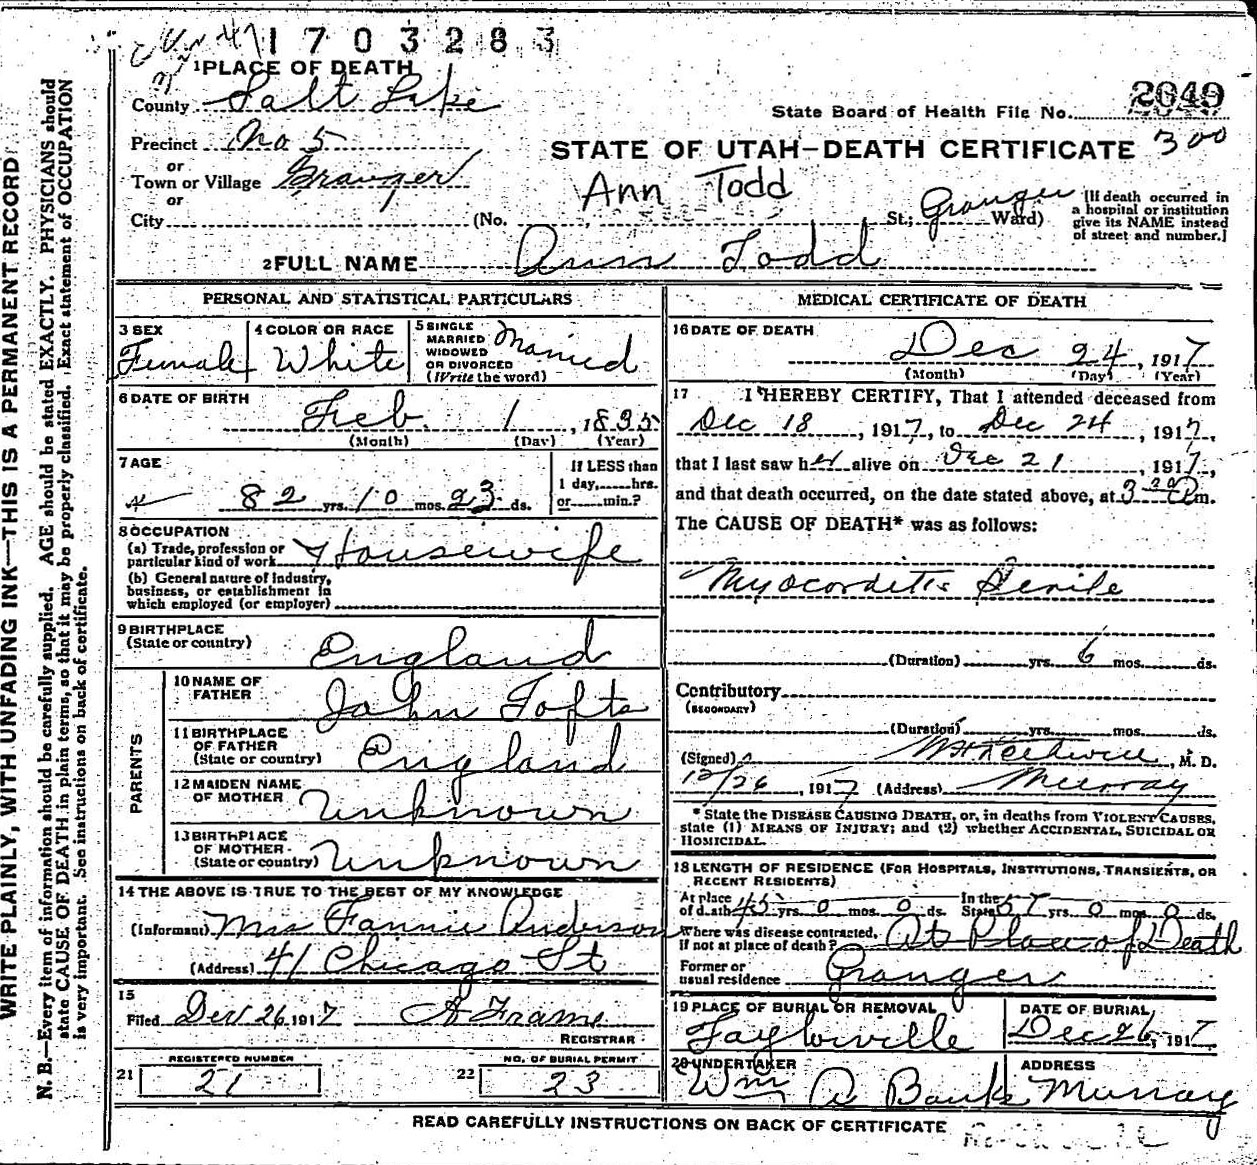 1703283
1 PLACE OF DEATH
County Salt Lake
State Board of Health File No. 2049
Precinct No 5
STATE OF UTAH—DEATH CERTIFICATE 300
or
Town or Village Granger
Ann Todd
or
City (No. St.; Granger Ward) [If death occurred in a hospital or institution give its NAME instead of street and number.]
2 FULL NAME Ann Todd
PERSONAL AND STATISTICAL PARTICULARS
3 SEX Female
4 COLOR OR RACE White
5 SINGLE MARRIED WIDOWED OR DIVORCED (Write the word) Married
6 DATE OF BIRTH
Feb. 1, 1835
(Month) (Day) (Year)
7 AGE
82 yrs. 10 mos. 23 ds.
If LESS than 1 day, hrs. or min.?
8 OCCUPATION
(a) Trade, profession or particular kind of work Housewife
(b) General nature of industry, business, or establishment in which employed (or employer)
9 BIRTHPLACE
(State or country) England
PARENTS
10 NAME OF FATHER John Tofts
11 BIRTHPLACE OF FATHER (State or country) England
12 MAIDEN NAME OF MOTHER Unknown
13 BIRTHPLACE OF MOTHER (State or country) Unknown
14 THE ABOVE IS TRUE TO THE BEST OF MY KNOWLEDGE
(Informant) Mrs Fannie Anderson
(Address) 41 Chicago St
15
Filed Dec 26 1917 A Frame
REGISTRAR
REGISTERED NUMBER
21 21
NO. OF BURIAL PERMIT
22 23
MEDICAL CERTIFICATE OF DEATH
16 DATE OF DEATH
Dec 24, 1917
(Month) (Day) (Year)
17 I HEREBY CERTIFY, That I attended deceased from
Dec 18, 1917, to Dec 24, 1917,
that I last saw her alive on Dec 21, 1917,
and that death occurred, on the date stated above, at 3 20 Pm.
The CAUSE OF DEATH* was as follows:
Myocorditis Senile
(Duration) yrs. 6 mos. ds.
Contributory
(SECONDARY)
(Duration) yrs. mos. ds.
(Signed) , M. D.
12/26, 1917 (Address) Murray
* State the DISEASE CAUSING DEATH, or, in deaths from VIOLENT CAUSES,
state (1) MEANS OF INJURY; and (2) whether ACCIDENTAL, SUICIDAL OR
HOMICIDAL.
18 LENGTH OF RESIDENCE (FOR HOSPITALS, INSTITUTIONS, TRANSIENTS, OR
RECENT RESIDENTS)
At place of death 45 yrs. 0 mos. 0 ds. In the State 57 yrs. 0 mos. 0 ds.
Where was disease contracted, if not at place of death? At Place of Death
Former or usual residence Granger
19 PLACE OF BURIAL OR REMOVAL
Taylorville
DATE OF BURIAL
Dec 26, 1917
20 UNDERTAKER
Wm A Banks
ADDRESS
Murray
READ CAREFULLY INSTRUCTIONS ON BACK OF CERTIFICATE
WRITE PLAINLY, WITH UNFADING INK—THIS IS A PERMANENT RECORD
N. B.—Every item of information should be carefully supplied. AGE should be stated EXACTLY. PHYSICIANS should
state CAUSE OF DEATH in plain terms, so that it may be properly classified. Exact statement of OCCUPATION
is very important. See instructions on back of certificate.